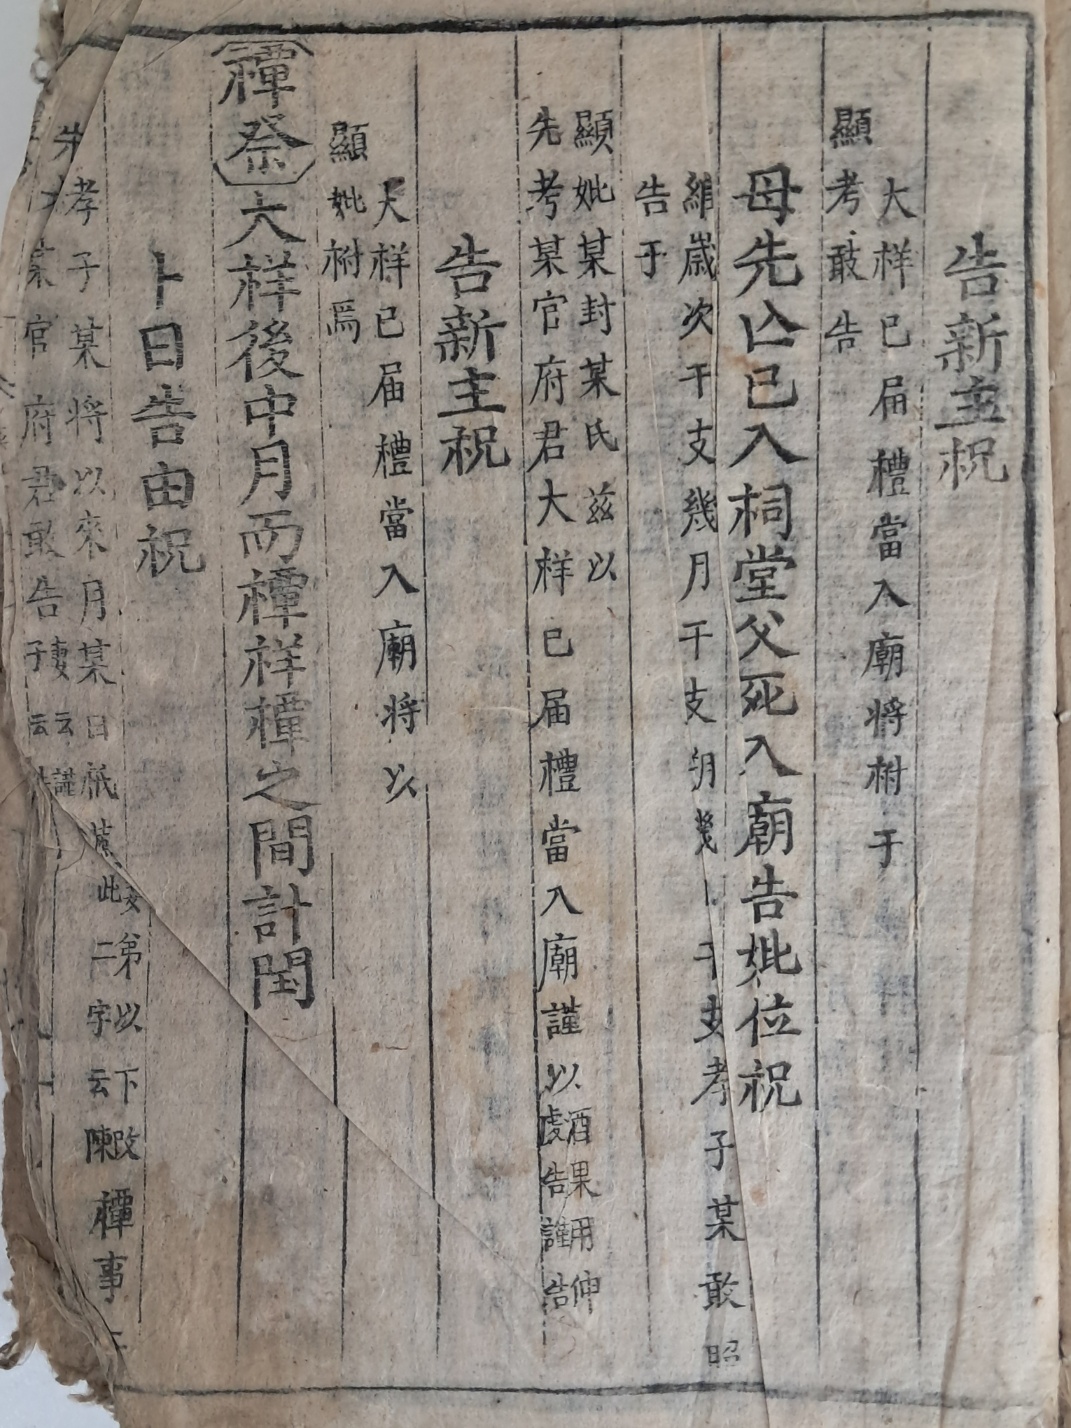 告新主祝
大祥已届禮當入廟將祔于
顯考敢告
母先亾已入祠堂父死入廟告妣位祝
維歲次干支幾月干支朔幾日干支孝子某敢昭
告于
顯妣某封某氏茲以
先考某官府君大祥已届禮當入廟謹以酒果用伸虔告謹告
告新主祝
大祥已届禮當入廟將以
顯妣祔焉
禫祭大祥後中月而禫祥禫之間計閏
卜日告由祝
孝子某將以來月某日祇薦此二字云陳妻弟以下改禫事
某官府君敢告妻子云云謹